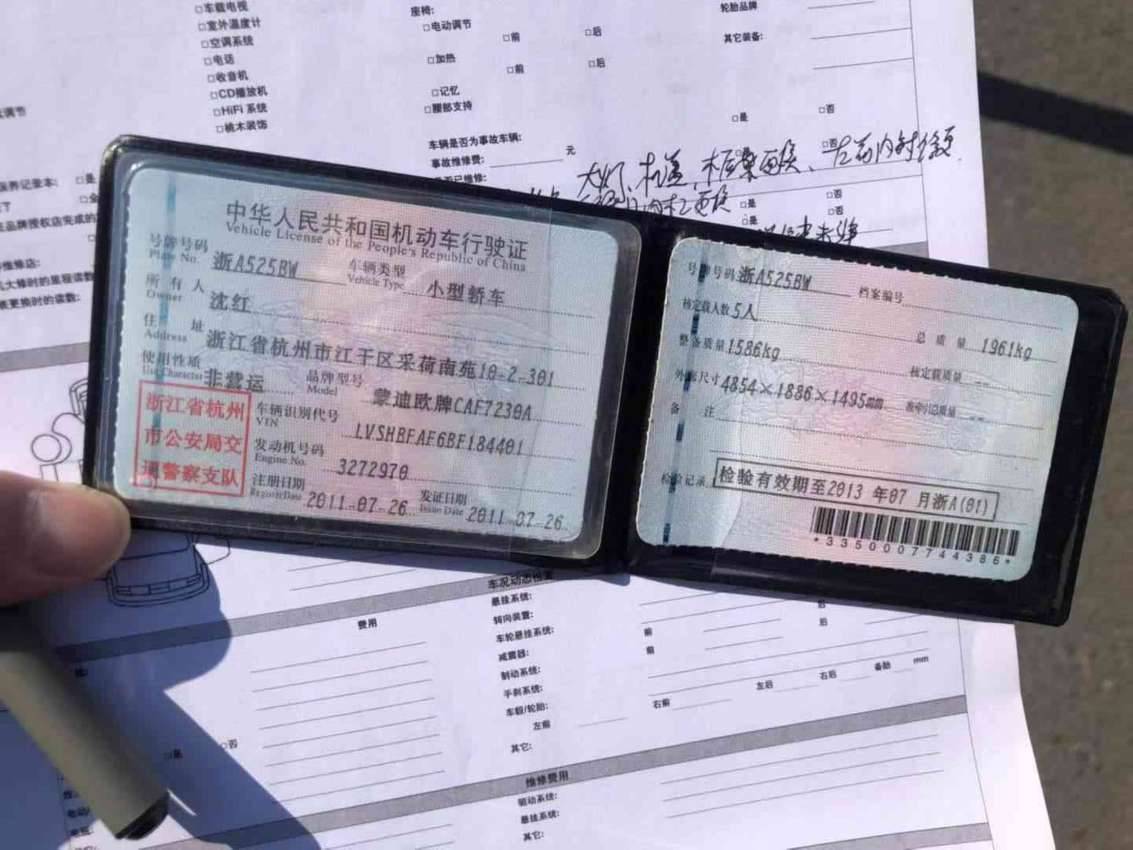 □车载电视
□室外温度计
□空调系统
□电话
□收音机
□CD播放机
□HiFi 系统
□桃木装饰
座椅:
□电动调节
□前 □后
□加热
□前 □后
□记忆
□腰部支持
轮胎品牌
其它装备:
□是 □否
车辆是否为事故车辆:
事故维修费: 元
□是 □否
□是 □否
保养记录本: □是
中华人民共和国机动车行驶证
Vehicle License of the People's Republic of China
号牌号码 浙A525BW 车辆类型 小型轿车
Plate No. Vehicle Type
所有人 沈红
Owner
住址 浙江省杭州市江干区采荷南苑10-2-301
Address
使用性质 非营运 品牌型号 蒙迪欧牌CAF7230A
Use Character Model
浙江省杭州
市公安局交
通警察支队
车辆识别代号 LVSHBFAF6BF184401
VIN
发动机号码 3272970
Engine No.
注册日期 2011-07-26 发证日期 2011-07-26
Register Date Issue Date
号牌号码 浙A525BW 档案编号
核定载人数 5人 总质量 1961kg
整备质量 1586kg 核定载质量 --
外廓尺寸 4854×1886×1495mm 准牵引总质量 --
备注
检验记录 检验有效期至2013 年07 月浙A(01)
*3350007744386*
费用
车况动态检查
悬挂系统:
转向装置:
车轮悬挂系统: 前 后
减震器: 前 后
制动系统:
手刹系统:
车毂/轮胎:
左前 右前 左后 右后 备胎 mm
其它:
□是 □否
维修费用
驱动系统:
悬挂系统:
其它: